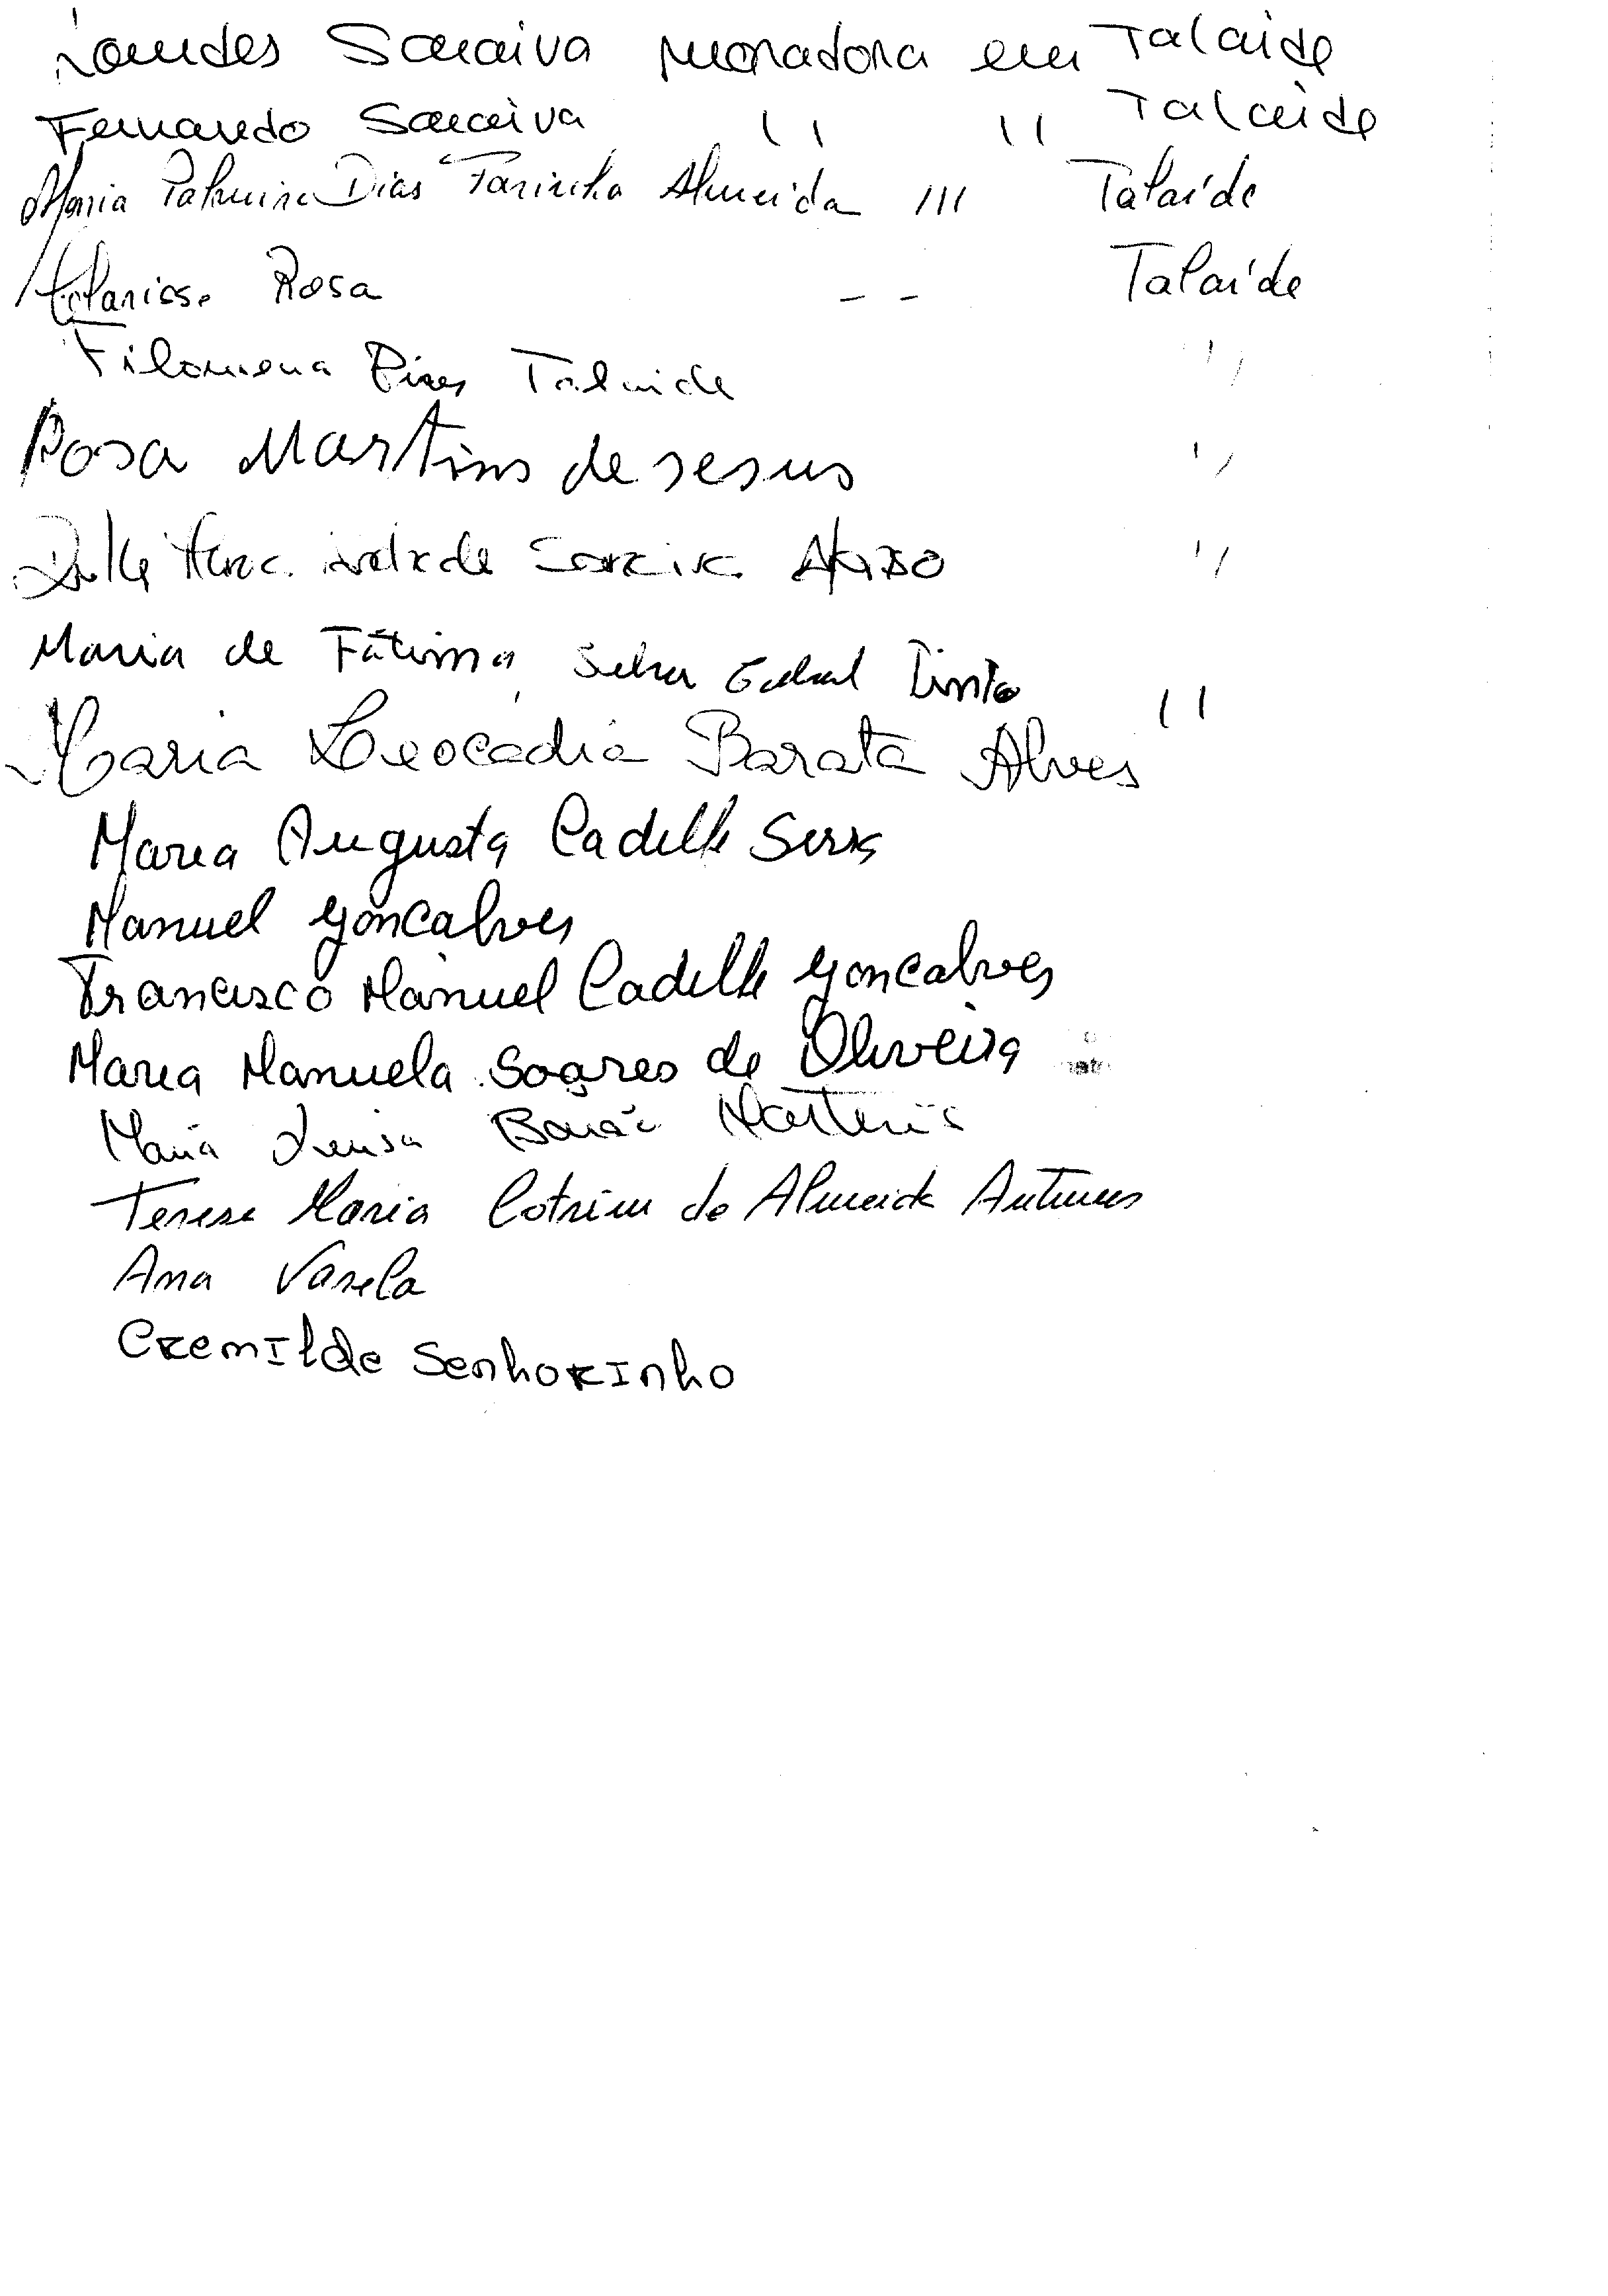 Lourdes Saraiva moradora em Talaide
Fernando Saraiva " " Talaide
Maria Palmira Dias Farinha Almeida /// Talaíde
Clarisse Rosa - - Talaíde
Filomena Pires Talaide "
Rosa Martins de Jesus "
Andrade Saraiva "
Maria de Fátima Silva Cabral Pinto "
Maria Leocádia Barata Alves
Maria Augusta Cadelha Serra
Manuel Goncalves
Francisco Manuel Cadelha Goncalves
Maria Manuela Soares de Oliveira
Maria Luisa Martins
Teresa Maria Cotrim de Almeida Antunes
Ana Varela
Cremilde Senhorinho